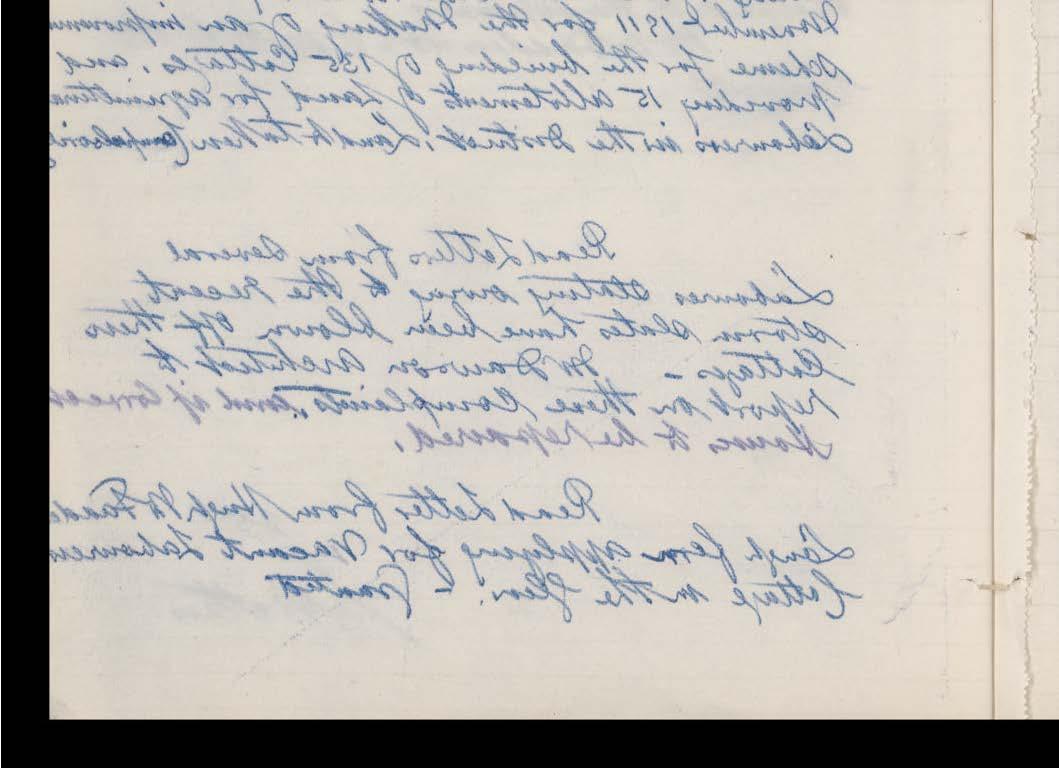 November 1911 for the Making of an improvem
scheme for the building of 135 Cottages, and
providing 15 allotments of Land for agricultura
Labourers in the District, Land to taken Compulsorily
Read Letters from several
Labourers stating owing to the recent
storm slates have been blown off their
Cottages - Mr Dawson architect to
report on these Complaints, and if Correct
Houses to be repaired.
Read Letter from Hugh McFadde
applying for Vacant Labourers
Cottage in the Glen. - Granted